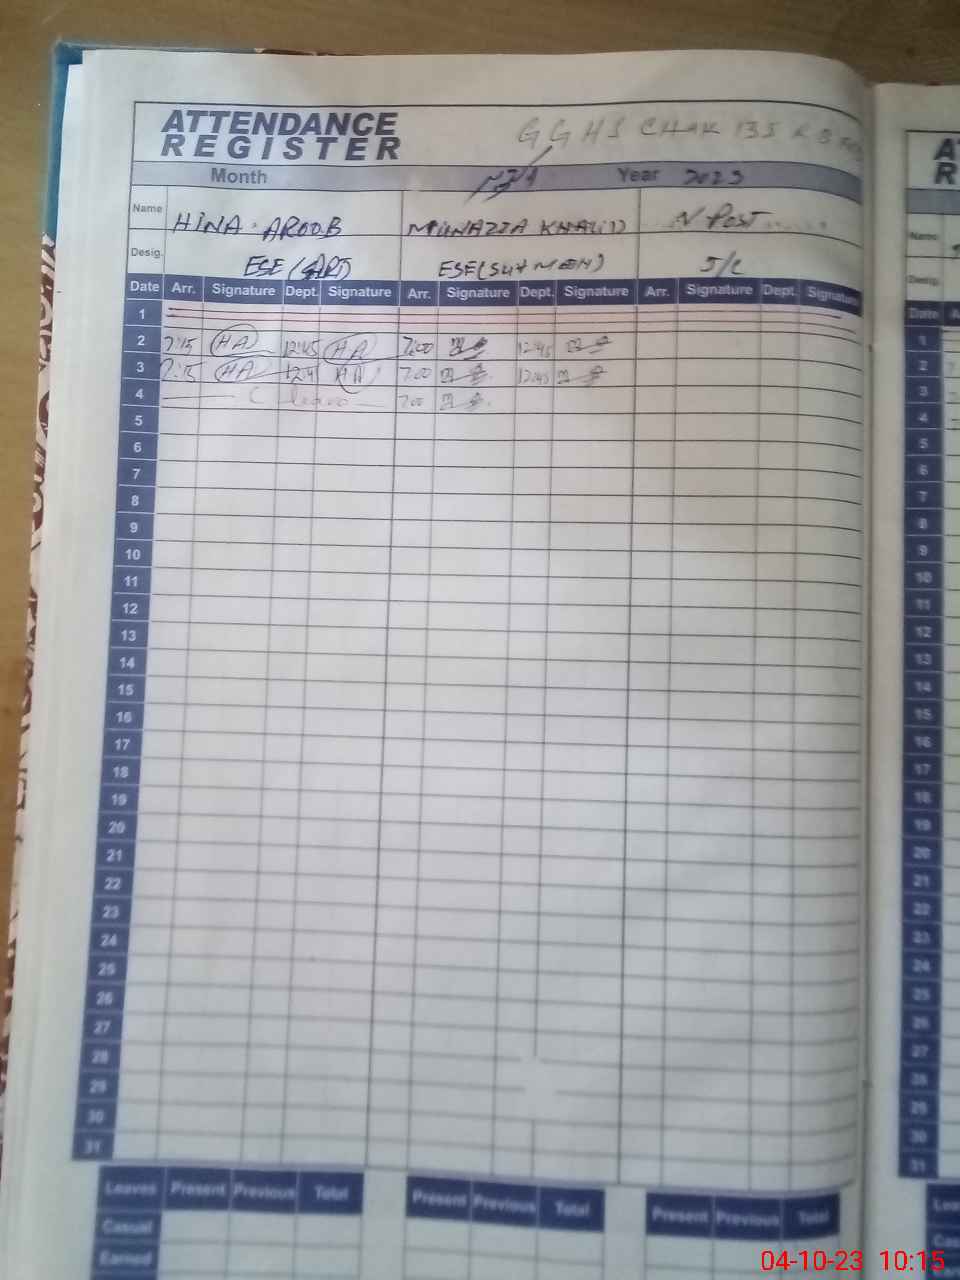 ATTENDANCE
REGISTER
G G H S CHAK 135 R B
Month Year 2023
Name HINA AROOB MUNAZZA KHALID N-POST
Desig. ESE (ART) ESE(SCI MATH) S/C
Date Arr. Signature Dept. Signature Arr. Signature Dept. Signature Arr. Signature Dept. Signature
1
2 7:15 HA 12:45 HA 7:00 12:45
3 7:15 HA 12:4 HA 7:00 12:45
4 C leave 7:00
5
6
7
8
9
10
11
12
13
14
15
16
17
18
19
20
21
22
23
24
25
26
27
28
29
30
31
Leaves Present Previous Total Present Previous Total Present Previous Total
Casual
Earned
A
R
Name
Desig.
Date A
1
2
3
4
5
6
7
8
9
10
11
12
13
14
15
16
17
18
19
20
21
22
23
24
25
26
27
28
29
30
31
04-10-23 10:15